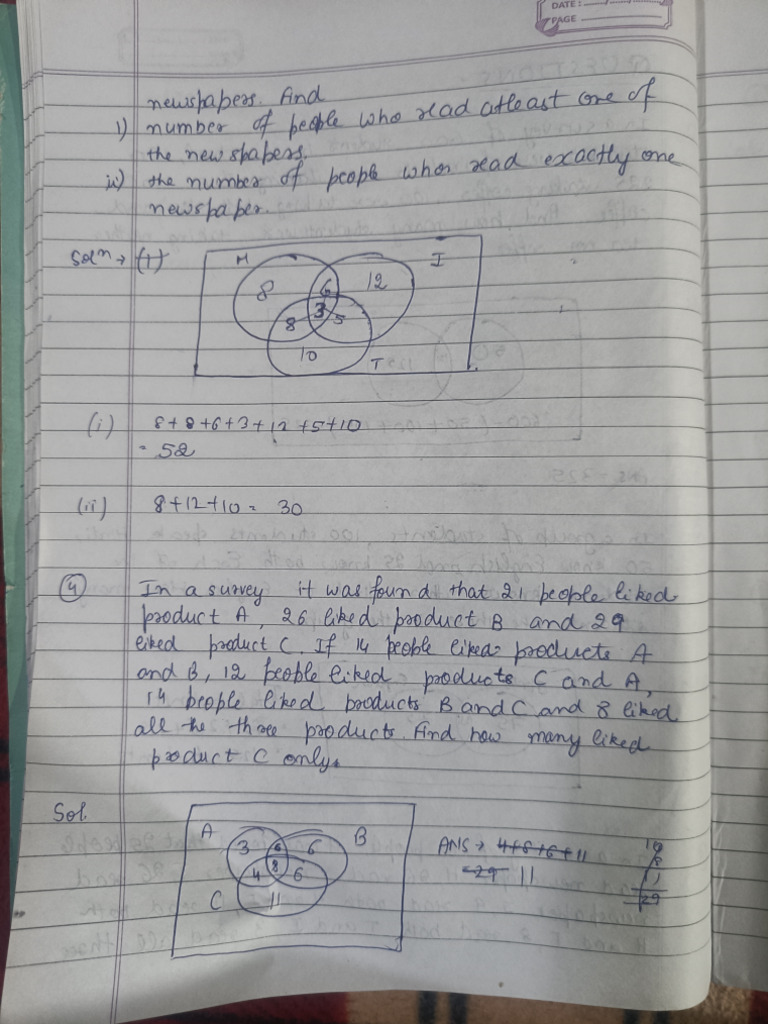 DATE:
PAGE
newspapers. Find
i) number of people who read atleast one of
the newspapers.
ii) the number of people whos read exactly one
newspaper.
Solⁿ → (1)
H
I
8
6
12
3
8
5
10
T
(i) 8+8+6+3+12+5+10
= 52
(ii) 8+12+10 = 30
(4) In a survey it was found that 21 people liked
product A, 26 liked product B and 29
liked product C. If 14 people liked products A
and B, 12 people liked products C and A,
14 people liked products B and C and 8 liked
all the three products. Find how many liked
product C only.
Sol
A
B
3
6
6
8
4
6
C
11
ANS → 4+8+6+11
= 29 11
29